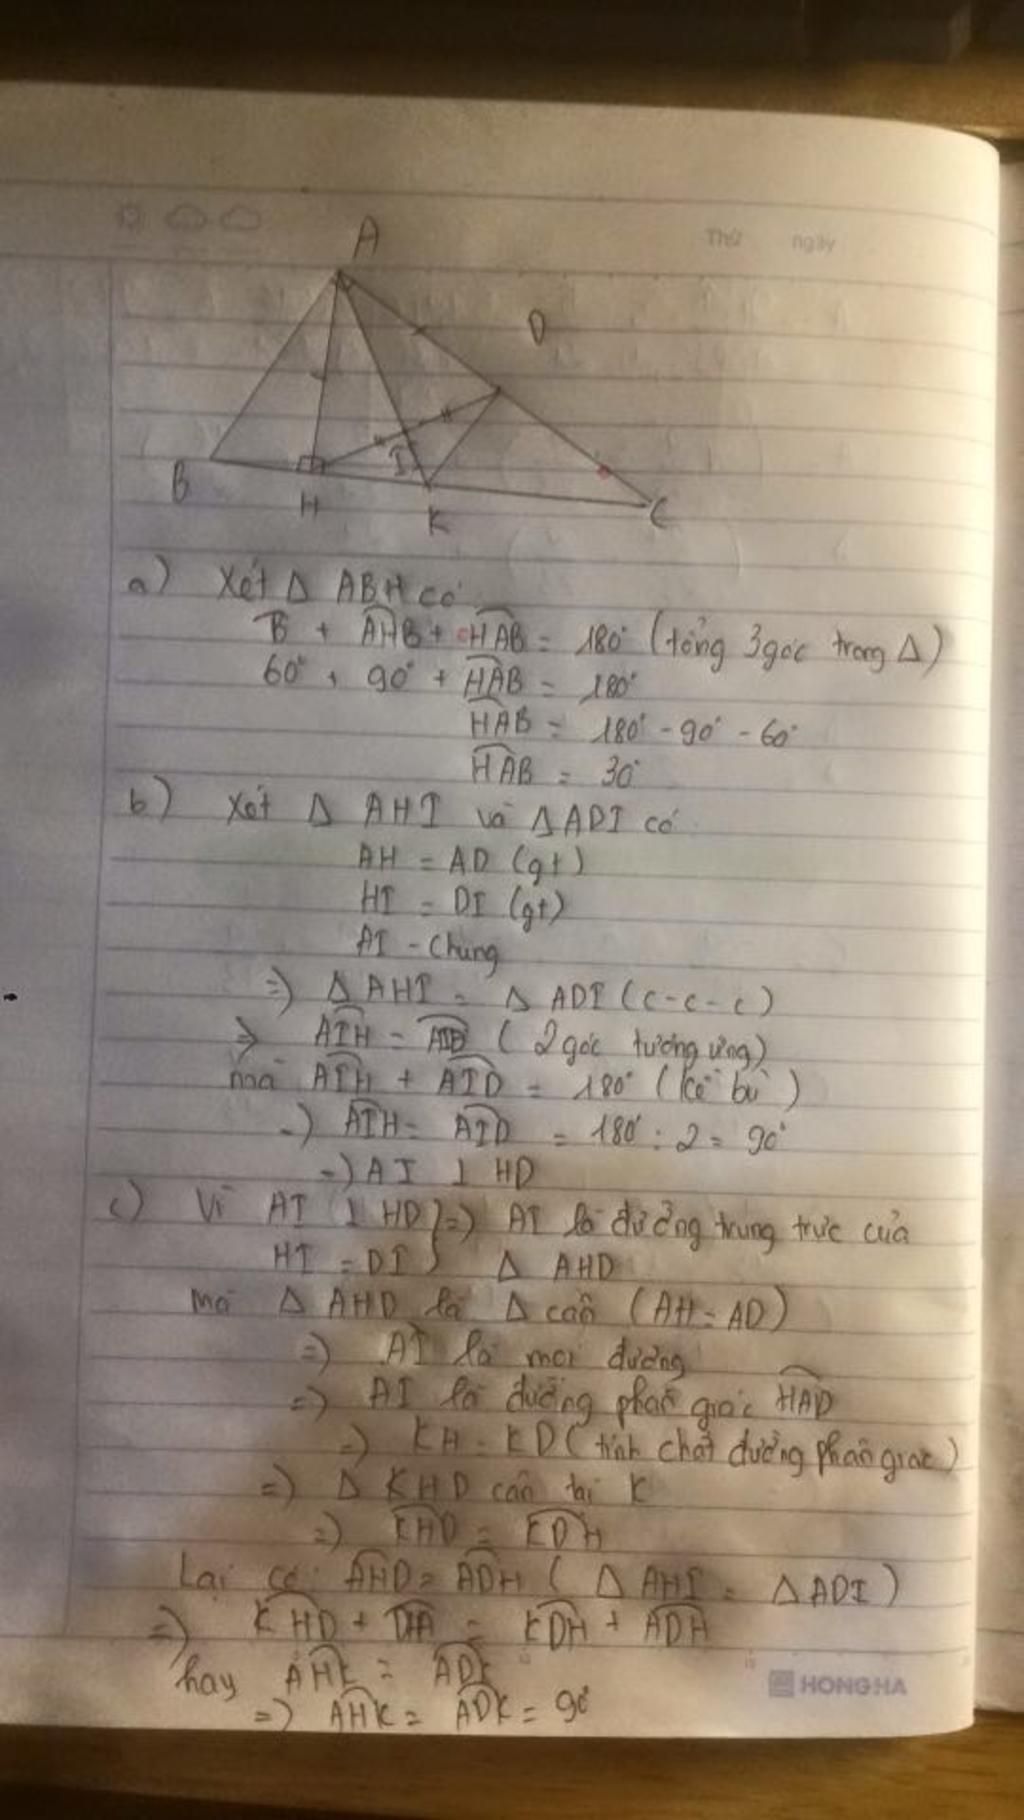 Thứ ngày
A
D
B
H
I
K
C
a) Xét Δ ABH có
B + AHB + HAB = 180° (tổng 3 góc trong Δ)
60° + 90° + HAB = 180°
HAB = 180° - 90° - 60°
HAB = 30°
b) Xét Δ AHI và Δ ADI có
AH = AD (gt)
HI = DI (gt)
AI - Chung
=> Δ AHI = Δ ADI (c-c-c)
=> AIH = AID (2 góc tương ứng)
mà AIH + AID = 180° (kề bù)
=> AIH = AID = 180° : 2 = 90°
=> AI ⊥ HD
c) Vì AI ⊥ HD } => AI là đường trung trực của
HI = DI } Δ AHD
mà Δ AHD là Δ cân (AH = AD)
=> AI là mọi đường
=> AI là đường phân giác HAD
=> KH = KD (tính chất đường phân giác)
=> Δ KHD cân tại K
=> KHD = KDH
Lại có: AHD = ADH (Δ AHI = Δ ADI)
=> KHD + DHA = KDH + ADH
hay AHK = ADK
=> AHK = ADK = 90°
HONG HA